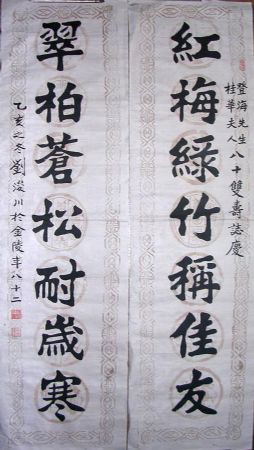 登海先生
桂華夫人八十雙壽誌慶
紅梅綠竹稱佳友
翠柏蒼松耐歲寒
乙亥之冬劉浚川於金陵年八十二